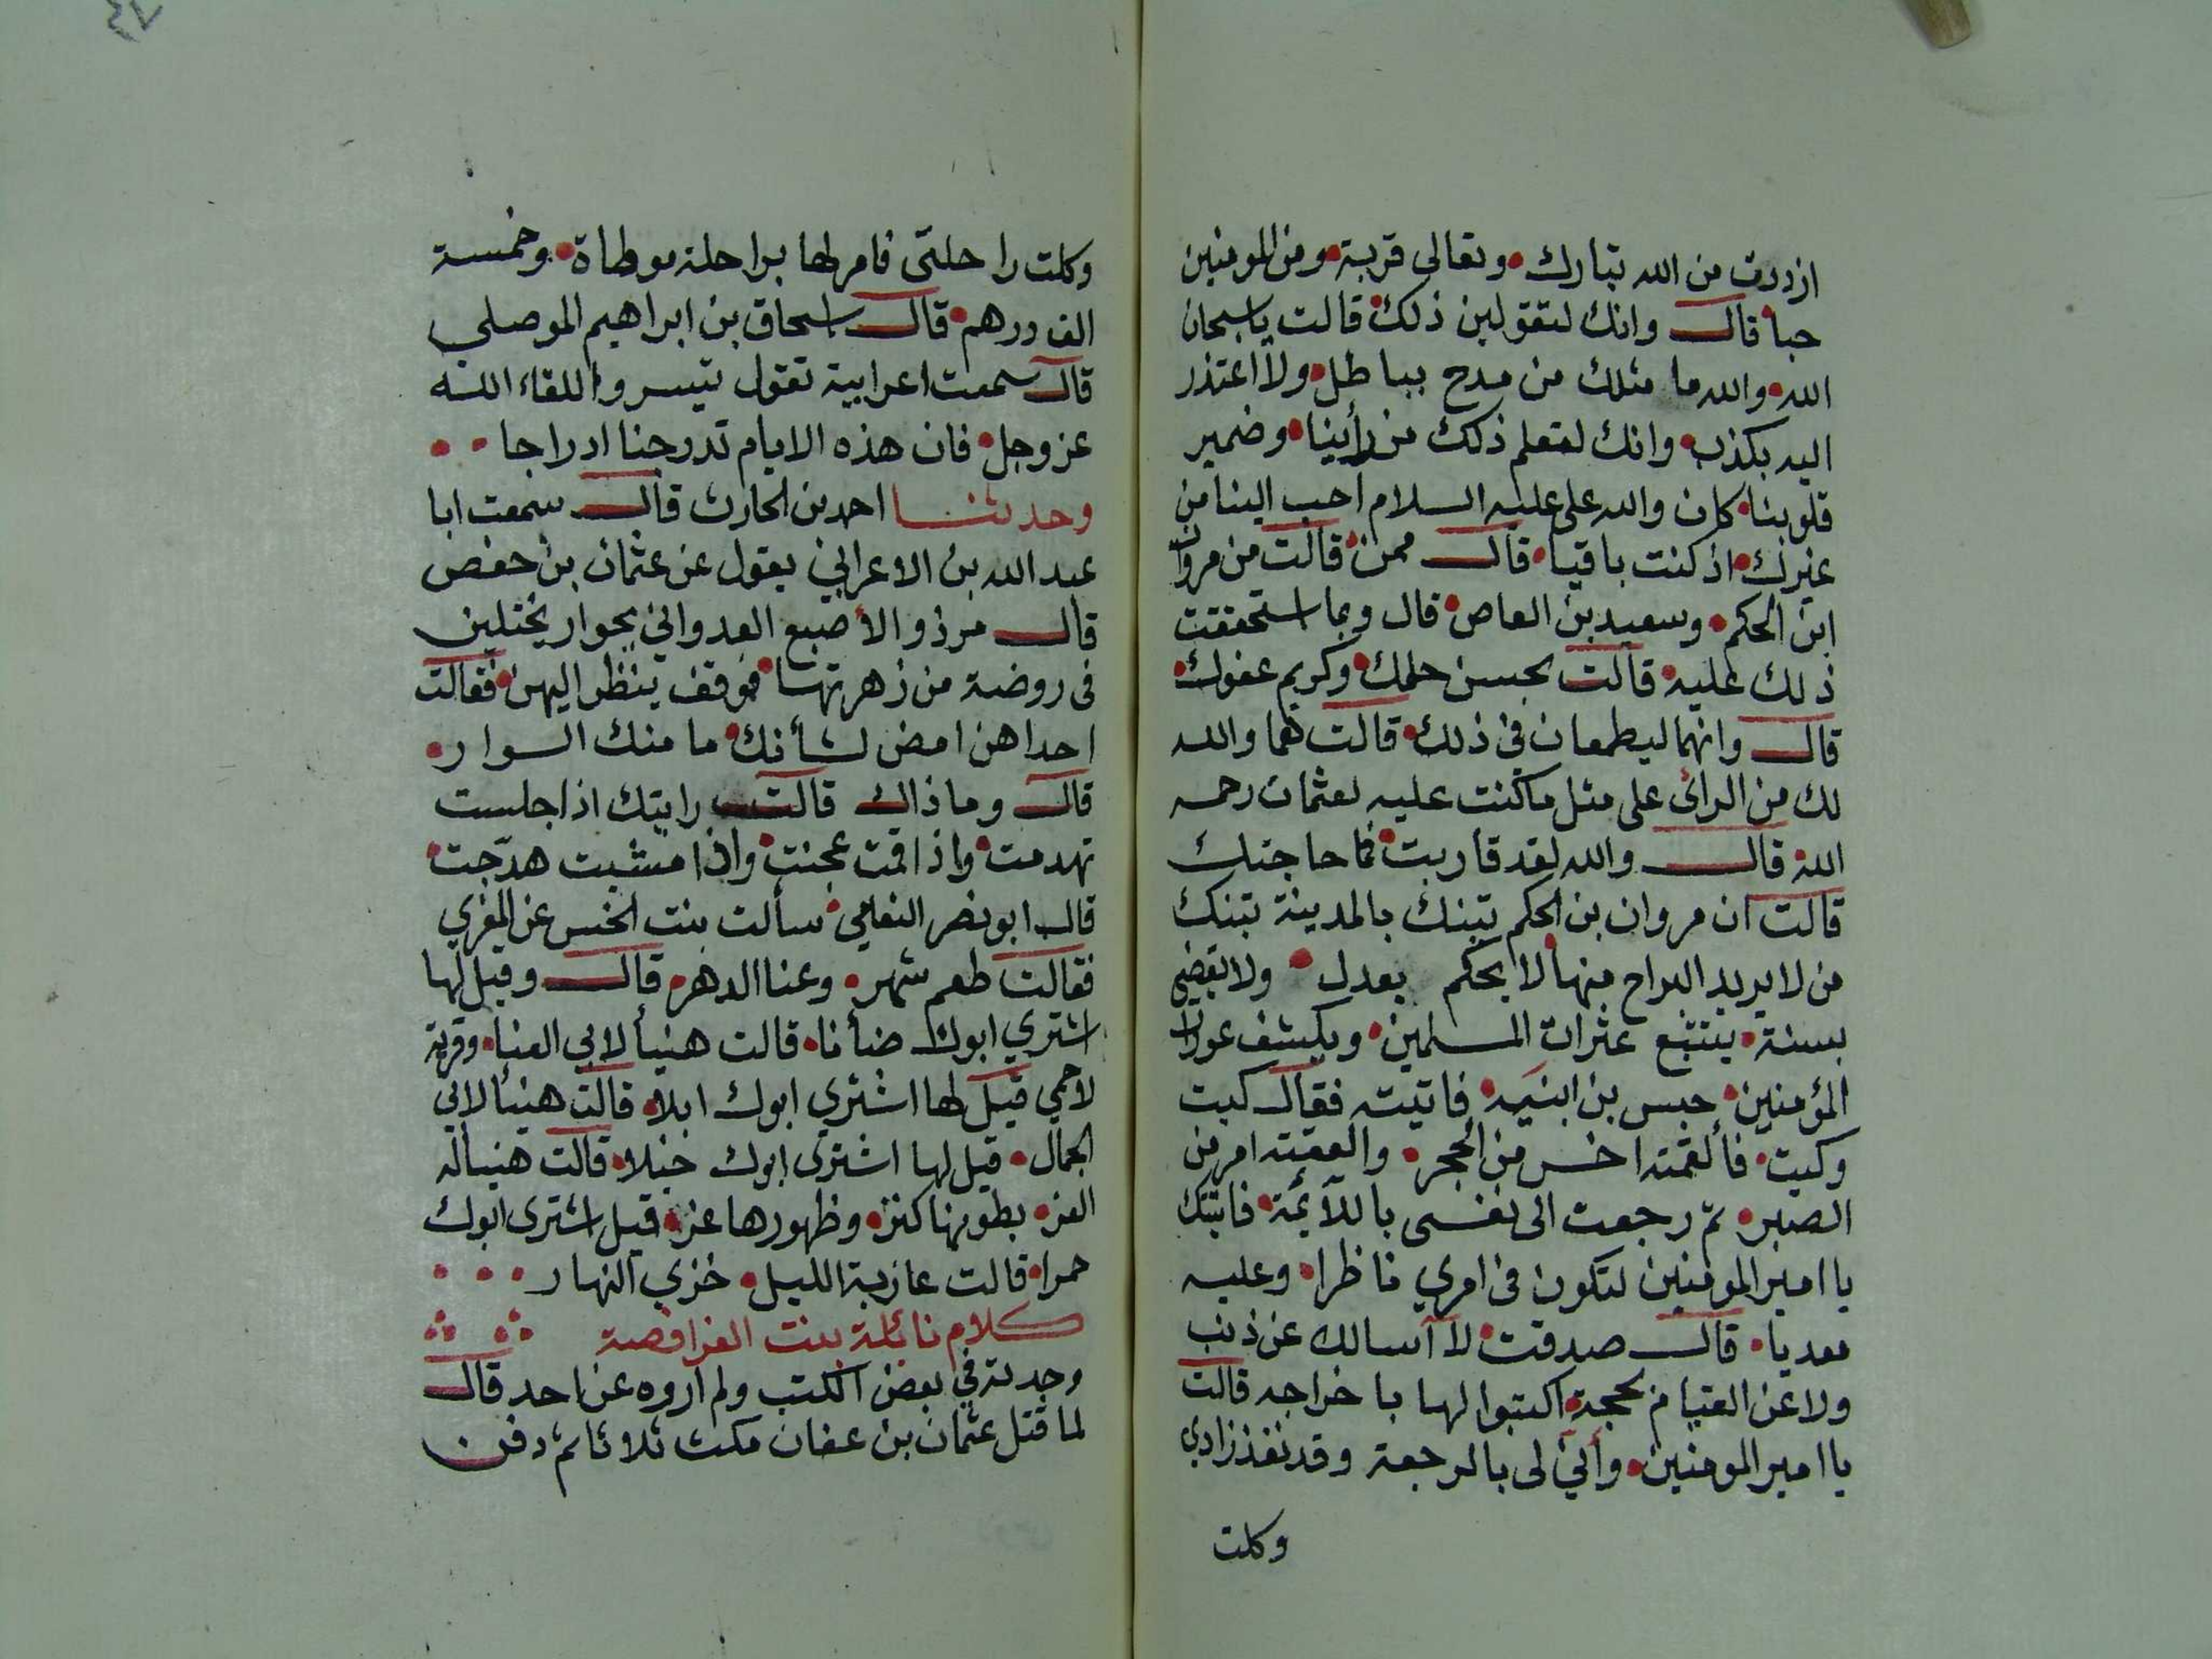 ازددت من الله تبارك وتعالى قربة ومن المومنين
حبا قال وانك لتقولين ذلك قالت ياسبحان
الله والله ما مثلك من مدح بباطل ولا اعتذر
اليه بكذب وانك لتعلم ذلك من رأينا وضمير
قلوبنا كان والله على عليه السلام احب الينا من
غيرك اذ كنت باقيا قال ممن قالت من مروان
ابن الحكم وسعيد بن العاص قال وبما استحققت
ذلك عليه قالت بحسن حلمك وكريم عفوك
قال وانهما ليطمعان في ذلك قالت هما والله
لك من الرأى على مثل ماكنت عليه لعثمان رحمه
الله قال والله لقد قاربت فما حاجتك
قالت ان مروان بن الحكم تبنك بالمدينة تبنك
من لا يريد البراح منها لا يحكم بعدل ولا يقضي
بسنة يتتبع عثرات المسلمين ويكشف عورات
المؤمنين حبس بن ابنيه فاتيته فقال كيت
وكيت فألقمته اخس من الحجر والعقته امر من
الصبر ثم رجعت الى نفسى باللآئمة فاتيتك
يا امير المومنين لتكون في امري ناظرا وعليه
معديا قال صدقت لا آسالك عن ذنب
ولا عن القيام بحجته اكتبوا لها باخراجه قالت
يا امير المومنين وأني لى بالرجعة وقد نفذ زادي
وكلت
٤٧
وكلت راحلتى فامر لها براحلة موطاة وخمسة
الف درهم قال اسحاق بن ابراهيم الموصلي
قال سمعت اعرابية تقول تيسروا للقاء الله
عز وجل فان هذه الايام تدرجنا ادراجا
وحدثنا احمد بن الحارث قال سمعت ابا
عبد الله بن الاعرابي يقول عن عثمان بن حفص
قال مر ذو الأصبع العدواني بجوار يختلين
في روضة من زهرتها فوقف ينظر اليهن فقالت
احداهن امض لشأنك ما منك السوار
قال وما ذاك قالت رايتك اذا جلست
تهدمت واذا قمت عجنت واذا مشيت هدّجت
قال ابو نصر النعامي سألت بنت الخس عن المغري
فقالت طعم شهر وعنا الدهر قال وقيل لها
اشتري ابوك ضأنا قالت هنيأ لابي الغنا وقرية
لاحمي قيل لها اشتري ابوك ابلا قالت هنيأ لابي
الجمال قيل لها اشترى ابوك خيلا قالت هنيأ له
العز بطونها كنز وظهورها عز قيل اشترى ابوك
حمرا قالت عازبة الليل خزي النهار
كلام نائلة بنت الفرافصة
وجدته في بعض الكتب ولم اروه عن احد قال
لما قتل عثمان بن عفان مكث ثلاثا ثم دفن